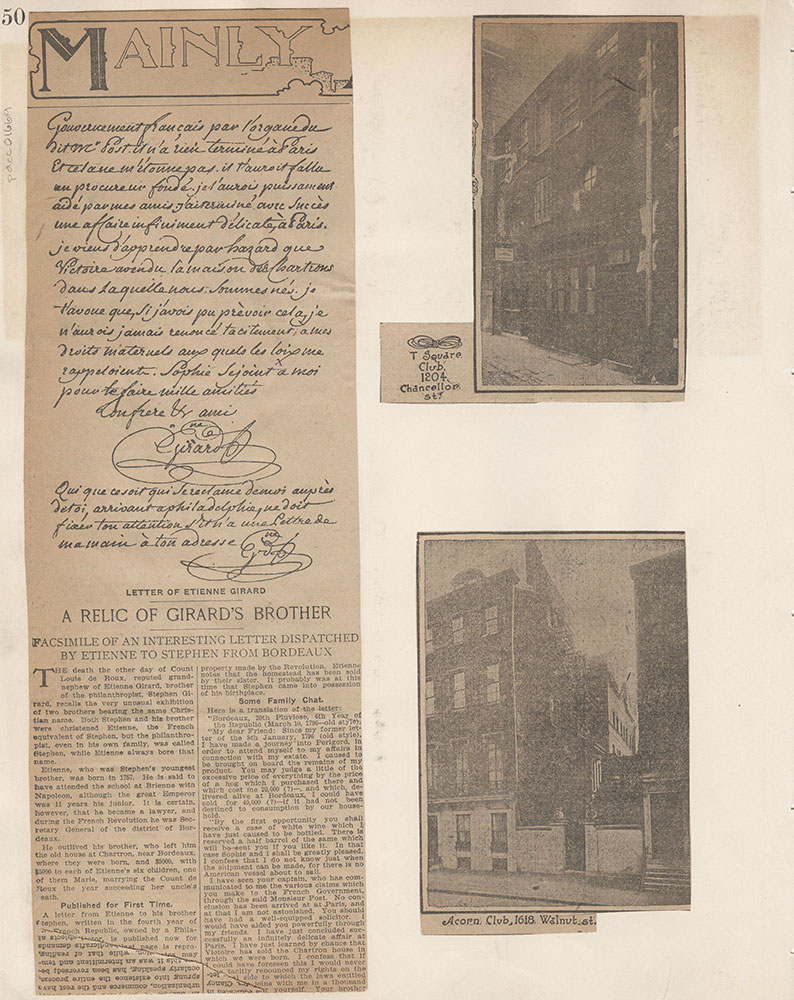 50
MAINLY
Gouvernement français par l'organe du
dit Mr Post. il n'a rien terminé à Paris
Et cela ne m'étonne pas. il t'auroit fallu
un procureur fondé. je l'aurois puissament
aidé par mes amis, j'ai terminé avec Succès
une affaire infiniment délicate, à Paris.
je viens d'apprendre par hazard que
Victoire a vendu la maison des Chartrons
dans Laquelle nous Sommes nés. je
t'avoue que, Si j'avois pu prévoir cela, je
n'aurois jamais renoncé tacitement, a mes
droits maternels aux quels les loix me
rappeloient. Sophie Se joint à moi
pour te faire mille amitiés
Ton frere & ami
Ene Girard
Qui que ce soit qui Se reclame de moi auprès
de toi, arrivant a philadelphia, ne doit
fixer ton attention S'il n'a une Lettre de
ma main à ton adresse
LETTER OF ETIENNE GIRARD
A RELIC OF GIRARD'S BROTHER
FACSIMILE OF AN INTERESTING LETTER DISPATCHED
BY ETIENNE TO STEPHEN FROM BORDEAUX
THE death the other day of Count
Louis de Roux, reputed grand-
nephew of Etienne Girard, brother
of the philanthropist, Stephen Gi-
rard, recalls the very unusual exhibition
of two brothers bearing the same Chris-
tian name. Both Stephen and his brother
were christened Etienne, the French
equivalent of Stephen, but the philanthro-
pist, even in his own family, was called
Stephen, while Etienne always bore that
name.
Etienne, who was Stephen's youngest
brother, was born in 1757. He is said to
have attended the school at Brienne with
Napoleon, although the great Emperor
was 11 years his junior. It is certain,
however, that he became a lawyer, and
during the French Revolution he was Sec-
retary General of the district of Bor-
deaux.
He outlived his brother, who left him
the old house at Chartron, near Bordeaux,
where they were born, and $5000, with
$5000 to each of Etienne's six children, one
of them Marie, marrying the Count de
Roux the year succeeding her uncle's
eath.
Published for First Time.
A letter from Etienne to his brother
Stephen, written in the fourth year of
French Republic, owned by a Phila-
is published now for
page is repro-
property made by the Revolution. Etienne
notes that the homestead has been sold
by their sister. It probably was at this
time that Stephen came into possession
of his birthplace.
Some Family Chat.
Here is a translation of the letter:
"Bordeaux, 20th Pluviose, 4th Year of
the Republic (March 10, 1796—old style).
"My dear Friend: Since my former let-
ter of the 8th January, 1796 (old style),
I have made a journey into Perigord, in
order to attend myself to my affairs in
connection with my estate. I caused to
be brought on board the remains of my
product. You may judge a little of the
excessive price of everything by the price
of a hog which I purchased there and
which cost me 20,000 (?)—, and which, de-
livered alive at Bordeaux, I could have
sold for 40,000 (?)—if it had not been
destined to consumption by our house-
hold.
"By the first opportunity you shall
receive a case of white wine which I
have just caused to be bottled. There is
reserved a half barrel of the same which
will be sent you if you like it. In that
case Sophie and I shall be greatly pleased.
I confess that I do not know just when
the shipment can be made, for there is no
American vessel about to sail.
I have seen your captain, who has com-
municated to me the various claims which
you make to the French Government,
through the said Monsieur Post. No con-
clusion has been arrived at at Paris, and
at that I am not astonished. You should
have had a well-equipped solicitor. I
would have aided you powerfully through
my friends. I have just concluded suc-
cessfully an infinitely delicate affair at
Paris. I have just learned by chance that
Victoire has sold the Chartron house in
which we were born. I confess that if
could have foreseen this I would never
tacitly renounced my rights on the
side to which the laws entitled
joins with me in a thousand
of yourself. Your brother
T Square
Club,
1204
Chancellor
st.
Acorn Club, 1618 Walnut st.